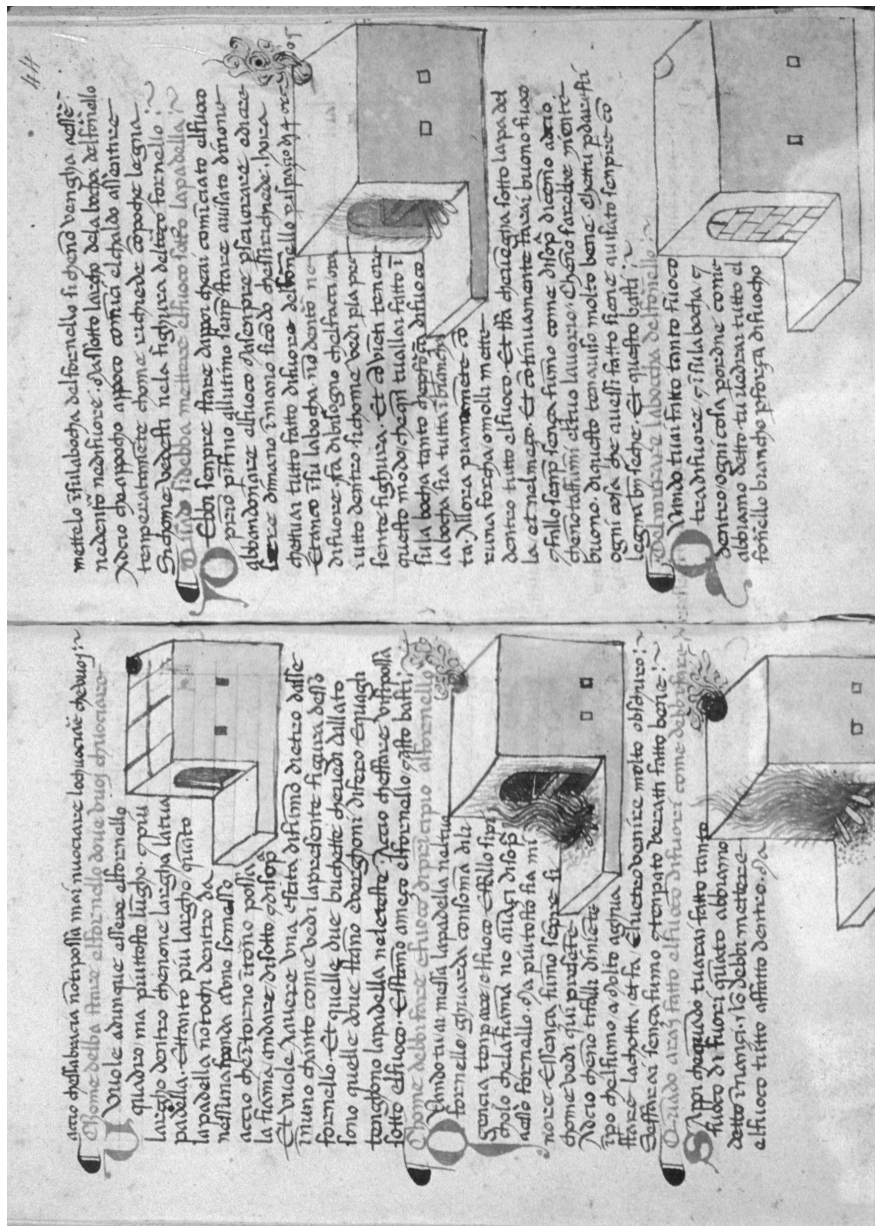 acciò chella bracia non possa mai nuociare lochuociare che vuoj
Chome debba stare el fornello dove vuoj chuociare
Vuole adunque essere el fornello
quadro ma piuttosto lugho. Et piu
largho dentro che none largha la tua
padella. Et tanto piu largho quāto
la padella no tochi dentro da
nessuna sponda a uno somesso
acciò che itorno itorno possa
la fiama andare di sotto et di sopa
Et vuole havere una essata di fumo dietro dalle
i uno chanto come vedi la presente figura desso
fornello. Et quelle due buchette che vedi dallato
sono quelle dove stanno e verghoni di fero. E quagli
tenghono la padella nele teste. Acciò che stare vi si possa
sotto el fuoco. Et stāno a mezo el fornello. questo basti
Chome debbi fare e fuoco di principio al fornello
Quando tu ai messa la padella nel tuo
fornello ghuarda con soma dili
gencia tenpare el fuoco. Et fallo si pi
cholo che la fiama no vada di sopa
nesso fornello. Ma piutosto sia mi
nore. Et senza fumo senpre si
chome vedi qui presente
Acciò che nō ti falli di niete
ipo che l fumo a dolto acqua
ffare la chotta. et fa el vetro venire molto obschuro
Se ffarai senza fumo et tenpato verati fatto bene
Quādo arai fatto el fuoco di fuori come debbi fare
Sappi che quādo tu arai fatto tanto
fuoco di fuori quāto abbiamo
detto inanzi. tu lo debbi mettere
el fuoco tutto affatto dentro. Ma
44
mettelo i sula bocha del fornello si che nō vengha nesse
ne dentro ne di fuore. Ma sotto larcho dela bocha del fornello
Acciò che appocho appoco comīci el chaldo assentire
temperatamēte chome richiede cō poche legna
Sichome vedesti nela fighura del terzo fornello
Quādo si debba mettere el fuoco sotto la padella
Debbi senpre stare dappoi che ai comīciato el fuoco
prīo pisino allultimo senpre stare avisato di none
abbandonare el fuoco. Ma senpre pseverare e dicre
scere di mano i mano secōdo chessi richiede. hora
che tu ai tutto fatto di fuore del fornello p ispazio di 4 ore o 5
Et anco i sula bocha. nō dentro ne
di fuore. fa di bisogno chel facci ora
i tutto dentro sichome vedi pla pre
sente fighura. Et cōvieti tenere
questo modo. che q̄n tu allai fatto i
sula bocha tanto che p forza di fuoco
la bocha sia tutta i bianchi
ta. Allora pianamente cō
runa forcha o molli mette
dentro tutto el fuoco. Et fa che vegha sotto la pa del
la et nel mezo. Et continuamente farai buono fuoco
et fallo senp senza fumo come di sopa dicemo acciò
che no taffumi el tuo lavorio. Che nō sarebbe niente
buono. Di questo tenavisi molto bene. Chettu pdaresti
ogni cosa che avessi fatto siene avisato senpre cō
legna bn seche. Et questo basti
Del murare la boccha del fornello
Quando tu ai fatto tanto fuoco
tra di fuore et i sula bocha. et
dentro. ogni cosa p ordine come
abbiamo detto tu vedrai tutto el
fornello biancho p forza di fuocho